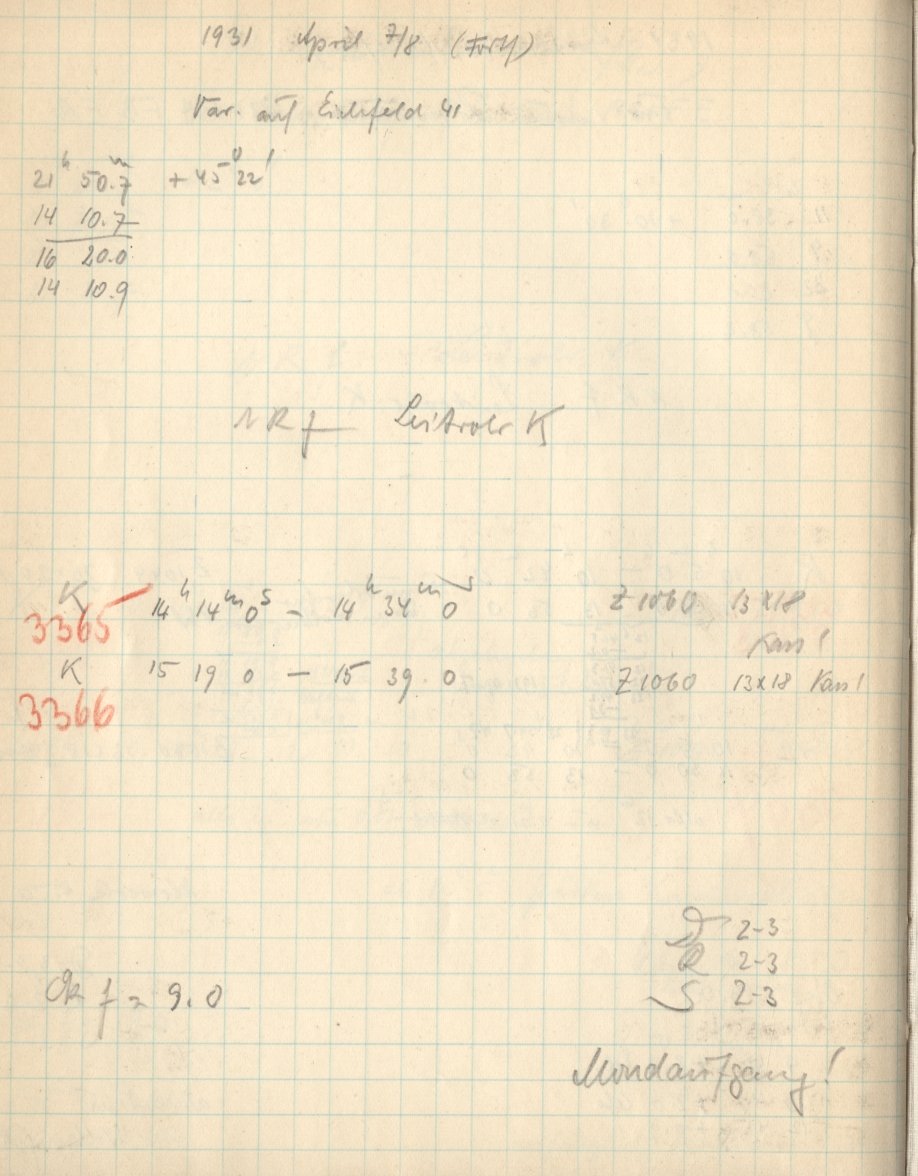 1931 April 7/8 (Forts)
Var. auf Eichfeld 41
21ʰ 50.7ᵐ +45° 22'
14 10.7
16 20.0
14 10.9
Leitrohr K
K 14ʰ 14ᵐ 0ˢ – 14ʰ 34ᵐ 0ˢ Z 1060 13x18
3365 Kass!
K 15 19 0 – 15 39. 0 Z 1060 13x18 Kass!
3366
D 2-3
R 2-3
Ok f = 9.0 S 2-3
Mondaufgang!